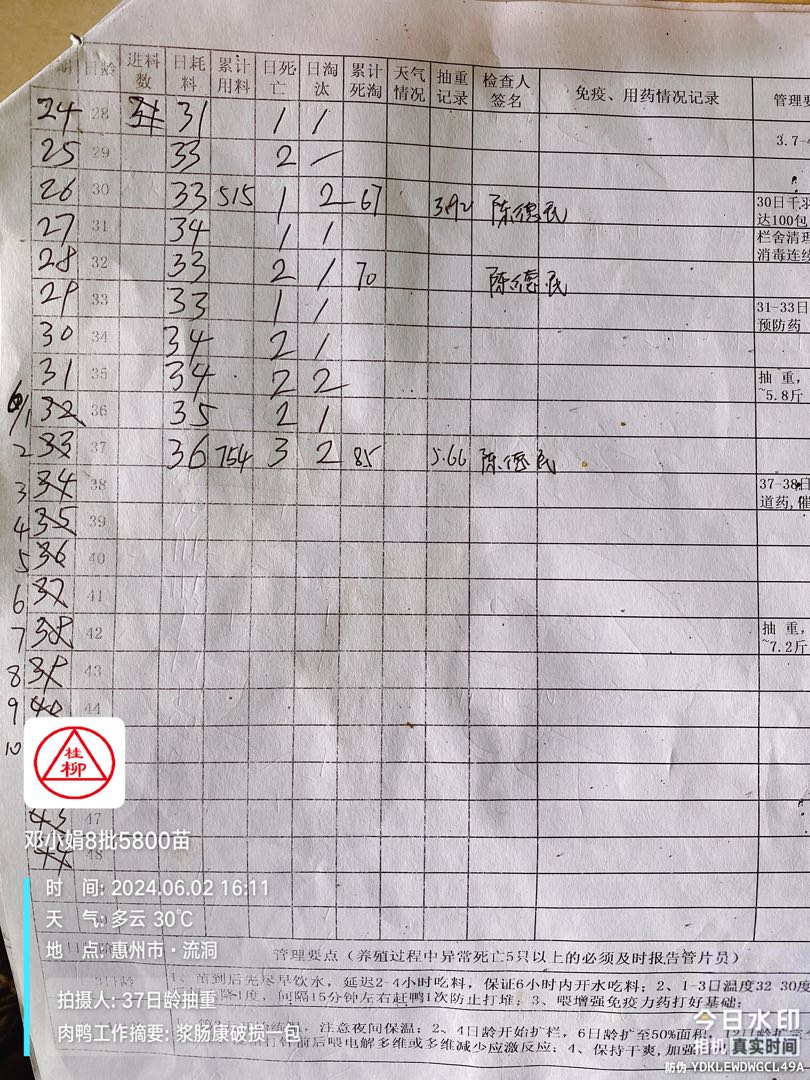 期 日龄 进料数 日耗料 累计用料 日死亡 日淘汰 累计死淘 天气情况 抽重记录 检查人签名 免疫、用药情况记录 管理要
24 28 31 1 1
3.7-4
25 29 33 2 —
26 30 33 515 1 2 67 3.92 陈德民 30日千羽
达100包
27 31 34 1 1 栏舍清理
消毒连续
28 32 33 2 1 70 陈德民
29 33 33 1 1 31-33日
预防药
30 34 34 2 1
31 35 34 2 2 抽重,
~5.8斤
6/1 32 36 35 2 1
2 33 37 36 754 3 2 85 5.66 陈德民
3 34 38 37-38日
道药,催
4 35 39
5 36 40
6 37 41
7 38 42 抽重,
~7.2斤
8 39 43
9 40 44
10
桂柳
43 47
邓小娟8批5800苗
44 48
时 间: 2024.06.02 16:11
天 气: 多云 30℃
地 点: 惠州市·流洞
管理要点（养殖过程中异常死亡5只以上的必须及时报告管片员）
苗到后先尽早饮水，延迟2-4小时吃料，保证6小时内开水吃料；2、1-3日温度32 30度
降1度，间隔15分钟左右赶鸭1次防止打堆；3、喂增强免疫力药打好基础；
拍摄人: 37日龄抽重
注意夜间保温；2、4日龄开始扩栏，6日龄扩至50%面积，12日龄扩至
肉鸭工作摘要: 浆肠康破损一包
打针前后喂电解多维或多维减少应激反应；4、保持干爽,加强
今日水印
相机 真实时间
防伪 YDKLEWDWGCL49A